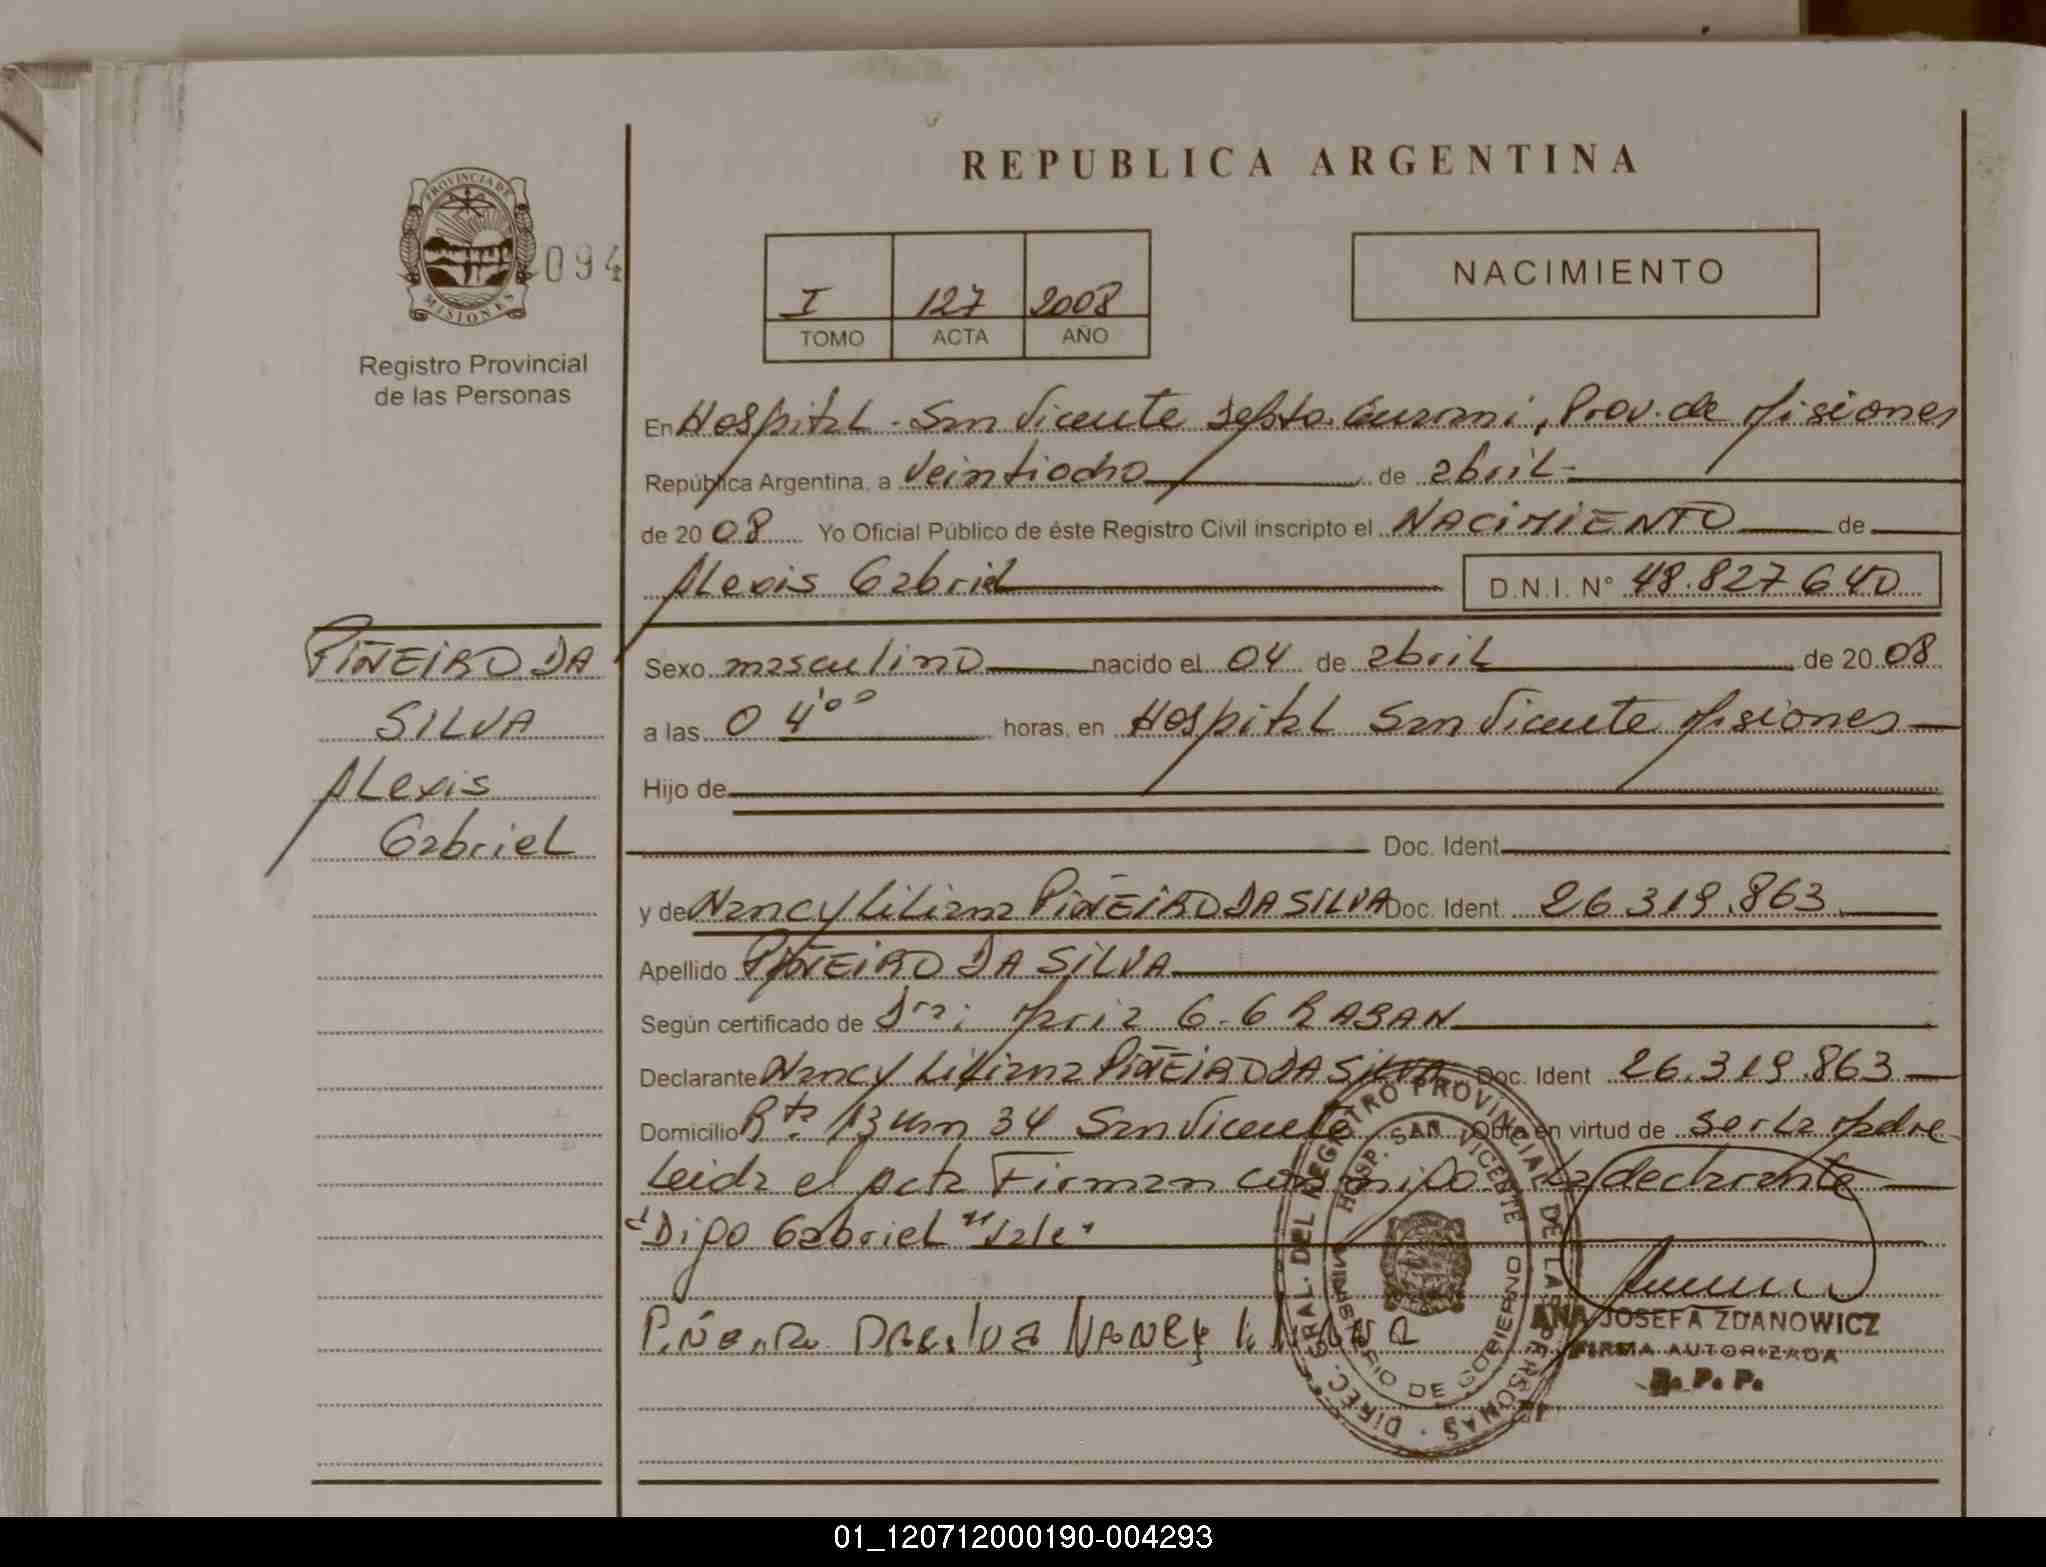 REPUBLICA ARGENTINA
PROVINCIA DE
MISIONES
094
Registro Provincial
de las Personas
I 127 2008
TOMO ACTA AÑO
NACIMIENTO
En Hospital - San Vicente Depto. Guarani, Prov. de Misiones
República Argentina, a veintiocho de abril
de 2008 Yo Oficial Público de éste Registro Civil inscripto el NACIMIENTO de
Alexis Gabriel D.N.I. N° 48.827640
PIÑEIRO DA
SILVA
Alexis
Gabriel
Sexo masculino nacido el 04 de abril de 2008
a las 04°° horas, en Hospital San Vicente Misiones
Hijo de
Doc. Ident.
y de Nancy Liliana PIÑEIRO DA SILVA Doc. Ident. 26.319.863
Apellido PIÑEIRO DA SILVA
Según certificado de Dra: Maria G. G
Declarante Nancy Liliana PIÑEIRO DA SILVA Doc. Ident 26.319.863
Domicilio Rta 13 Km 34 San Vicente Obra en virtud de ser la Madre
Leida el Acta Firman con migo la declarante
Digo Gabriel "Vale"
Nancy
DIREC. GRAL. DEL REGISTRO PROVINCIAL DE LAS PERSONAS
HOSP. SAN VICENTE
MINISTERIO DE GOBIERNO
ANA JOSEFA ZDANOWICZ
FIRMA AUTORIZADA
R. P. P.
01_120712000190-004293